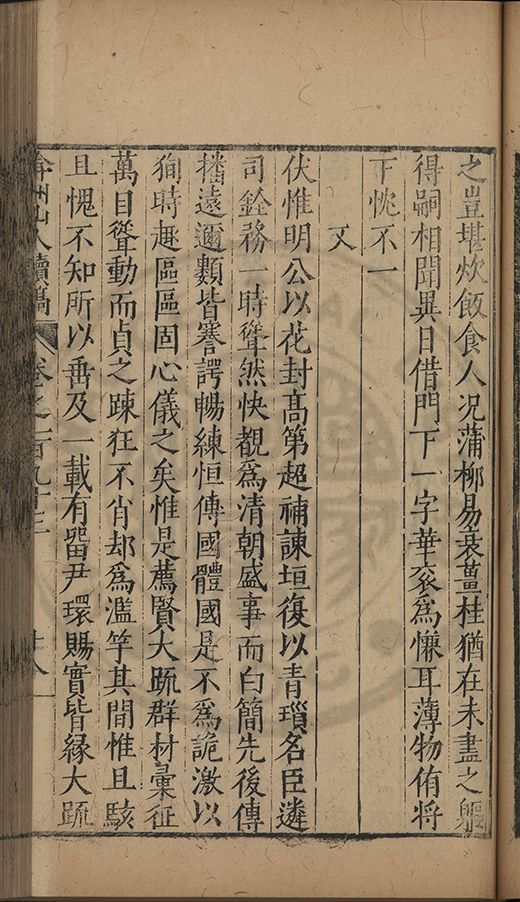 之豈堪炊飯食人况蒲柳易衰薑桂猶在未盡之軀
得嗣相聞異日借門下一字華衮爲懷耳薄物侑將
下忱不一
又
伏惟明公以花封高第超補諫垣復以青瑣名臣遴
司銓務一時聳然快覩爲清朝盛事而白簡先後傳
播遠邇類皆謇諤暢練恒傳國體國是不爲詭激以
狥時趣區區固心儀之矣惟是薦賢大疏群材彙征
萬目聳動而貞之疎狂不肖却爲濫竽其間惟且駭
且愧不知所以垂及一載有留尹環賜實皆緣大疏
弇州山人續稿 卷之一百九十三 廿八